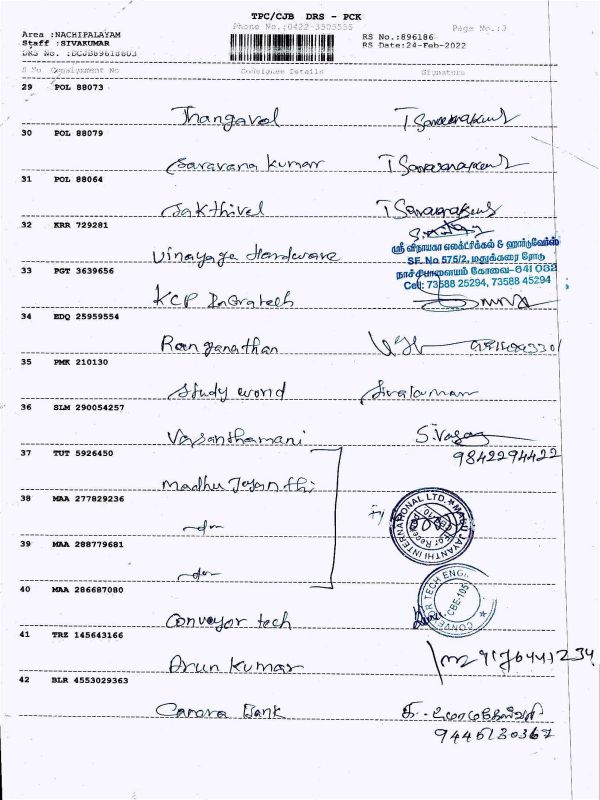 TPC/CJB DRS - PCK
Phone No.:0422-3505555
Page No.:3
Area :NACHIPALAYAM
Staff :SIVAKUMAR
RS No.:896186
RS Date:24-Feb-2022
S No Consignment No Consignee Details Signature
29 POL 88073
Thangavel
30 POL 88079
Saravana kumar
31 POL 88064
Sakthivel
32 KRR 729281
Vinayaga Hardware
ஸ்ரீ விநாயகா எலக்ட்ரிக்கல் & ஹார்டுவேர்ஸ்
SF. No 575/2, மதுக்கரை ரோடு
நாச்சிபாளையம் கோவை-641 032
Cell: 73588 25294, 73588 45294
33 PGT 3639656
KCP
34 EDQ 25959554
Ranganathan
35 PMK 210130
Study world
36 SLM 290054257
Vasanthamani
37 TUT 5926450
9842294422
Madhu Jeyanthi
38 MAA 277829236
MADHU JAYANTHI INTERNATIONAL LTD.
39 MAA 288779681
40 MAA 286687080
Conveyor tech
CONVEYOR TECH ENGG
CBE-105
41 TRZ 145643166
Arun kumar
42 BLR 4553029363
Canara Bank